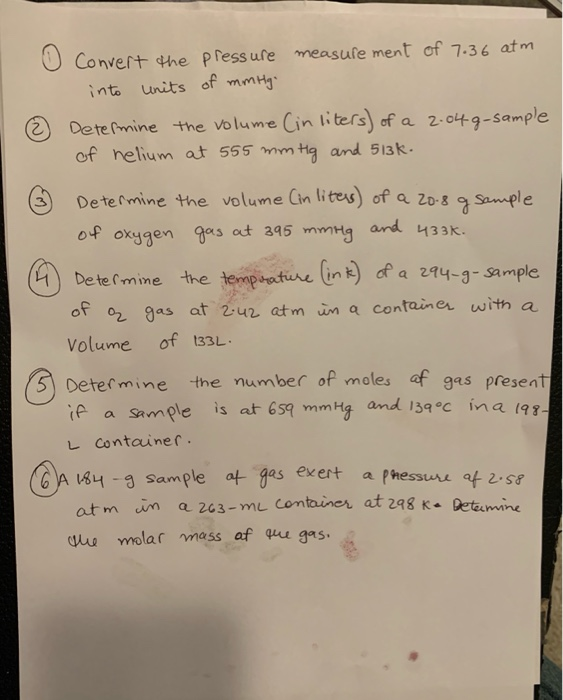 ① Convert the pressure measurement of 7.36 atm
into units of mmHg.
② Determine the volume (in liters) of a 2.04g-sample
of helium at 555 mmHg and 513K.
③ Determine the volume (in liters) of a 20.8 g sample
of oxygen gas at 395 mmHg and 433K.
④ Determine the temperature (in k) of a 294-g-sample
of O2 gas at 2.42 atm in a container with a
Volume of 133L.
⑤ Determine the number of moles of gas present
if a sample is at 659 mmHg and 139°C in a 198-
L container.
⑥ A 1.84-g sample of gas exert a pressure of 2.58
atm in a 263-mL container at 298 K. Determine
the molar mass of the gas.